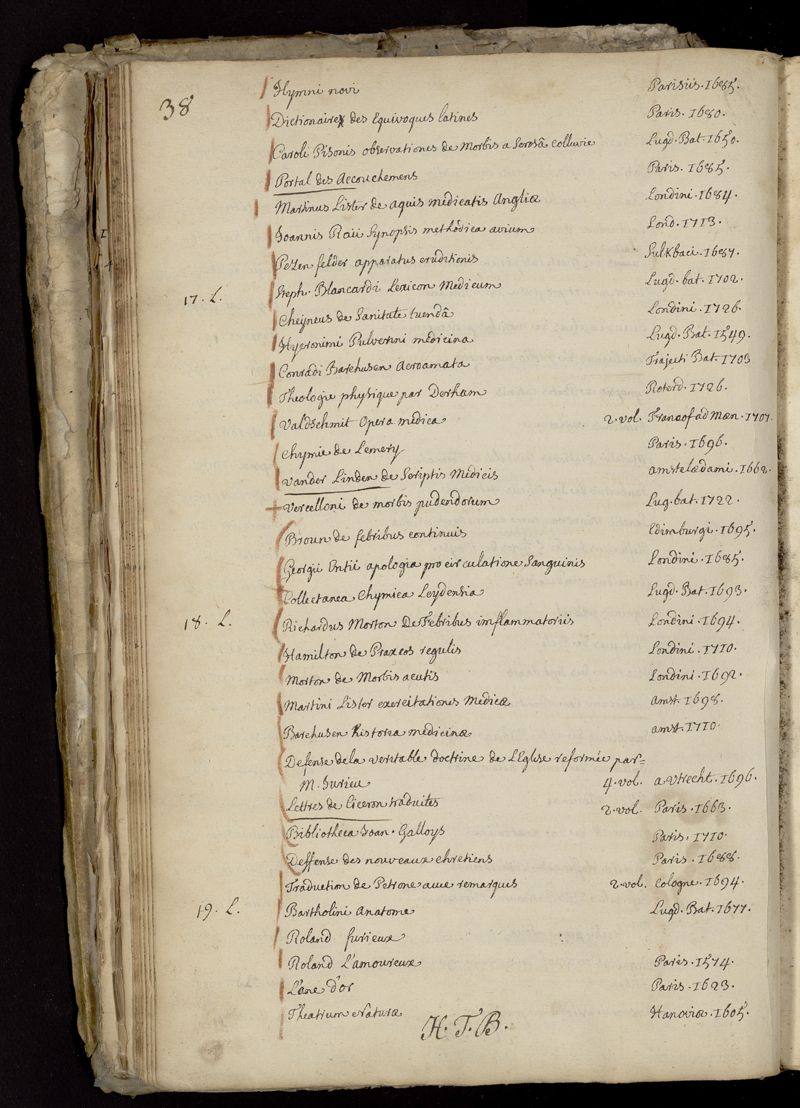 38
Hymni novi Parisiis. 1685.
Dictionaire des Equivoques latines Paris. 1680.
Caroli Pisonis observationes de Morbis a Serosâ colluvie Lugd. Bat. 1650.
Portal des Accouchemens Paris. 1685.
Martinus Lister de aquis medicatis Angliæ Londini. 1684.
Joannis Raii Synopsis methodica avium Lond. 1713.
Pezen felder apparatus eruditionis Sulkbaci. 1687.
17. L. Steph. Blancardi Lexicon Medicum Lugd. bat. 1702.
Cheyneus de Sanitate tuendâ Londini. 1726.
Hyeronimi Pulverini medicina Lugd. Bat. 1549.
Conradi Barchusen Acroamata Trajecti Bat. 1703
Theologie physique par Derham Roterd. 1726.
Valdschmit Opera medica 2. vol. Francof ad Mæn. 1707.
Chymie de Lemery Paris. 1696.
vander Linden de Scriptis Medicis amstelædami. 1662.
Vercelloni de morbis pudendorum Lug. bat. 1722.
Broun de febribus continuis Edimburgi. 1695.
Georgii Entii apologia pro circulatione Sanguinis Londini. 1685.
Collectanea Chymica Leydensia Lugd. Bat. 1693.
18. L. Richardus Morton De Febribus inflammatoriis Londini. 1694.
Hamilton de Praxeos regulis Londini. 1710.
Morton de Morbis acutis Londini. 1692.
Martini Lister exercitationes Medicæ amst. 1698.
Barchusen historea medicinæ amst. 1710.
Defense de la veritable doctrine de L'Eglise reformée par=
M. Jurieu 4. vol. a Vtrecht. 1696.
Lettres de Ciceron traduites 2. vol. Paris. 1663.
Bibliotheca Joan. Galloys Paris. 1710.
Deffense des nouveaux chretiens Paris. 1688.
Traduction de Petrone avec remarques 2. vol. Cologne. 1694.
19. L. Bartholini Anatome Lugd. Bat. 1677.
Roland furieux
Roland L'amoureux Paris. 1574.
L'ane d'or Paris. 1623.
Theatrum Naturæ Hanoviæ. 1605.
H. T. B.